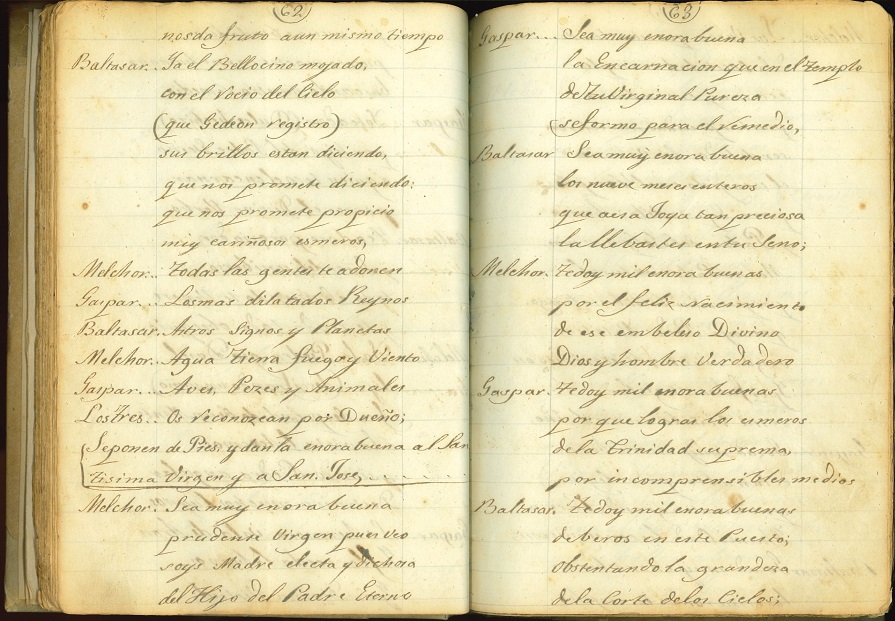 62
nos da fruto aun mismo tiempo
Baltasar.. Ya el Bellocino mojado,
con el Rocio del Cielo
(que Gedeon registro)
sus brillos estan diciendo,
que nos promete diciendo:
que nos promete propicio
muy cariñosos esmeros,
Melchor.. Todas las gentes te adoren
Gaspar... Los mas dilatados Reynos
Baltasar. Astros Signos y Planetas
Melchor.. Agua Tierra fuego y Viento
Gaspar... Aves, Pezes y Animales
Los Tres.. Os reconozcan por Dueño;
Se ponen de Pies, y dan la enora buena a la San
tisima Virgen y a San. Jose,
Melchor. Sea muy enora buena
prudente Virgen pues veo
soys Madre electa y dichosa
del Hijo del Padre Eterno
63
Gaspar... Sea muy enora buena
la Encarnacion que en el Templo
de tu Virginal Pureza
se formo para el remedio,
Baltasar Sea muy enora buena
los nueve meses enteros
que a esa Joya tan preciosa
la llebastes en tu Seno;
Melchor. Te doy mil enora buenas
por el feliz nacimiento
de ese embeleso Divino
Dios y hombre verdadero
Gaspar. Te doy mil enora buenas
por que logras los esmeros
de la Trinidad suprema,
por incomprensibles medios
Baltasar. Te doy mil enora buenas
de beros en este Puesto;
obstentando la grandeza
de la Corte de los Cielos;